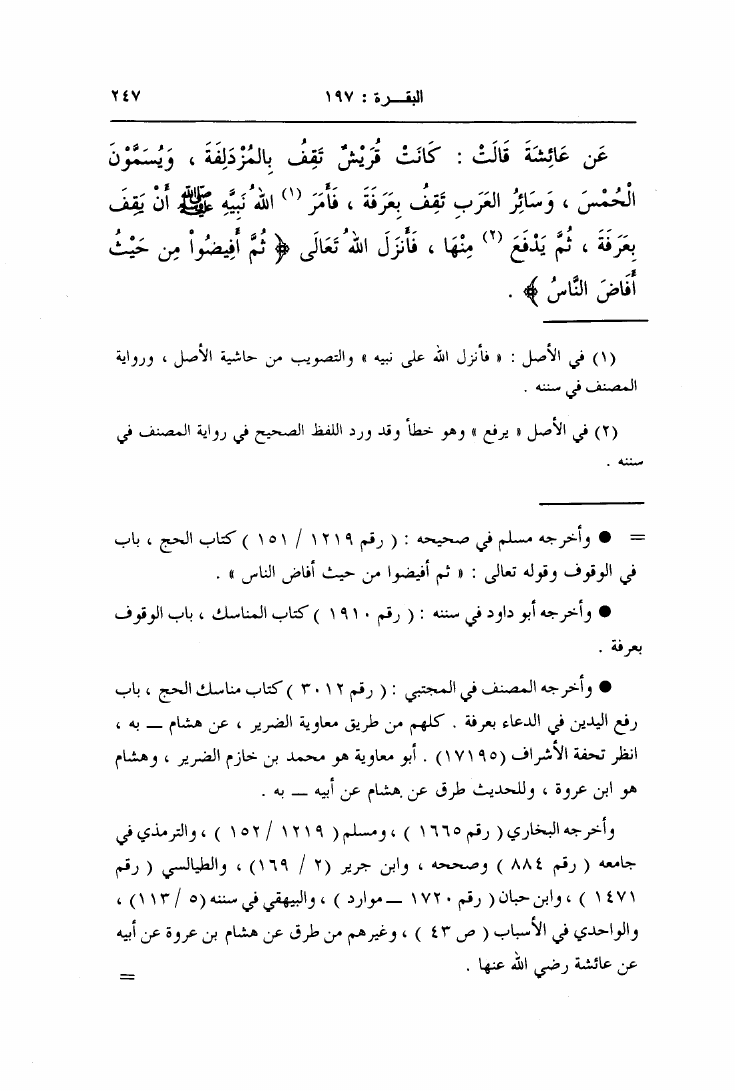 البقـــرة : ١٩٧ ٢٤٧
عَن عَائِشَةَ قَالَتْ : كَانَتْ قُرَيْشٌ تَقِفُ بِالمُزْدَلِفَةَ ، وَيُسَمَّوْنَ
الْحُمْسَ ، وَسَائِرُ العَرَبِ تَقِفُ بِعَرَفَةَ ، فَأَمَرَ (١) اللهُ نَبِيَّهِ ﷺ أَنْ يَقِفَ
بِعَرَفَةَ ، ثُمَّ يَدْفَعَ (٢) مِنْهَا ، فَأَنْزَلَ اللهُ تَعَالَى ﴿ ثُمَّ أَفِيضُواْ مِن حَيْثُ
أَفَاضَ النَّاسُ ﴾ .
(١) في الأصل : « فأنزل الله على نبيه » والتصويب من حاشية الأصل ، ورواية
المصنف في سننه .
(٢) في الأصل « يرفع » وهو خطأ وقد ورد اللفظ الصحيح في رواية المصنف في
سننه .
= ● وأخرجه مسلم في صحيحه : ( رقم ١٢١٩ / ١٥١ ) كتاب الحج ، باب
في الوقوف وقوله تعالى : « ثم أفيضوا من حيث أفاض الناس » .
● وأخرجه أبو داود في سننه : ( رقم ١٩١٠ ) كتاب المناسك ، باب الوقوف
بعرفة .
● وأخرجه المصنف في المجتبي : ( رقم ٣٠١٢ ) كتاب مناسك الحج ، باب
رفع اليدين في الدعاء بعرفة . كلهم من طريق معاوية الضرير ، عن هشام ــ به ،
انظر تحفة الأشراف (١٧١٩٥) . أبو معاوية هو محمد بن خازم الضرير ، وهشام
هو ابن عروة ، وللحديث طرق عن هشام عن أبيه ــ به .
وأخرجه البخاري ( رقم ١٦٦٥ ) ، ومسلم ( ١٢١٩ / ١٥٢ ) ، والترمذي في
جامعه ( رقم ٨٨٤ ) وصححه ، وابن جرير (٢ / ١٦٩) ، والطيالسي ( رقم
١٤٧١ ) ، وابن حبان ( رقم ١٧٢٠ ــ موارد ) ، والبيهقي في سننه (٥ / ١١٣) ،
والواحدي في الأسباب ( ص ٤٣ ) ، وغيرهم من طرق عن هشام بن عروة عن أبيه
عن عائشة رضي الله عنها .
=